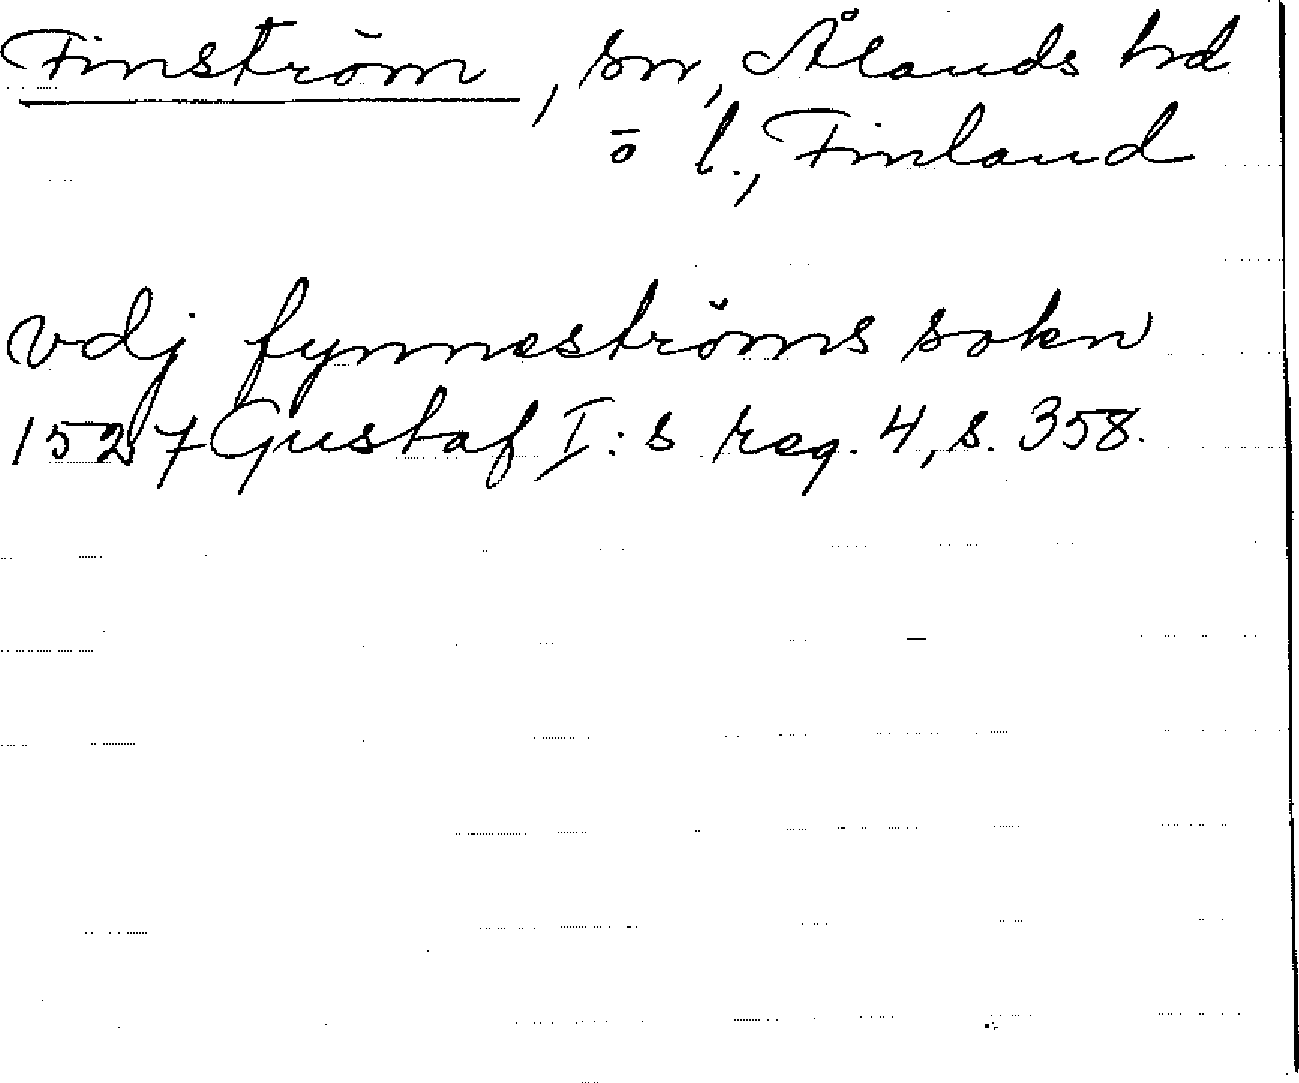 Finström, sn, Ålands hd
ō l., Finland
vdj fynneströms sokn
1527 Gustaf I:s reg. 4, s. 358.